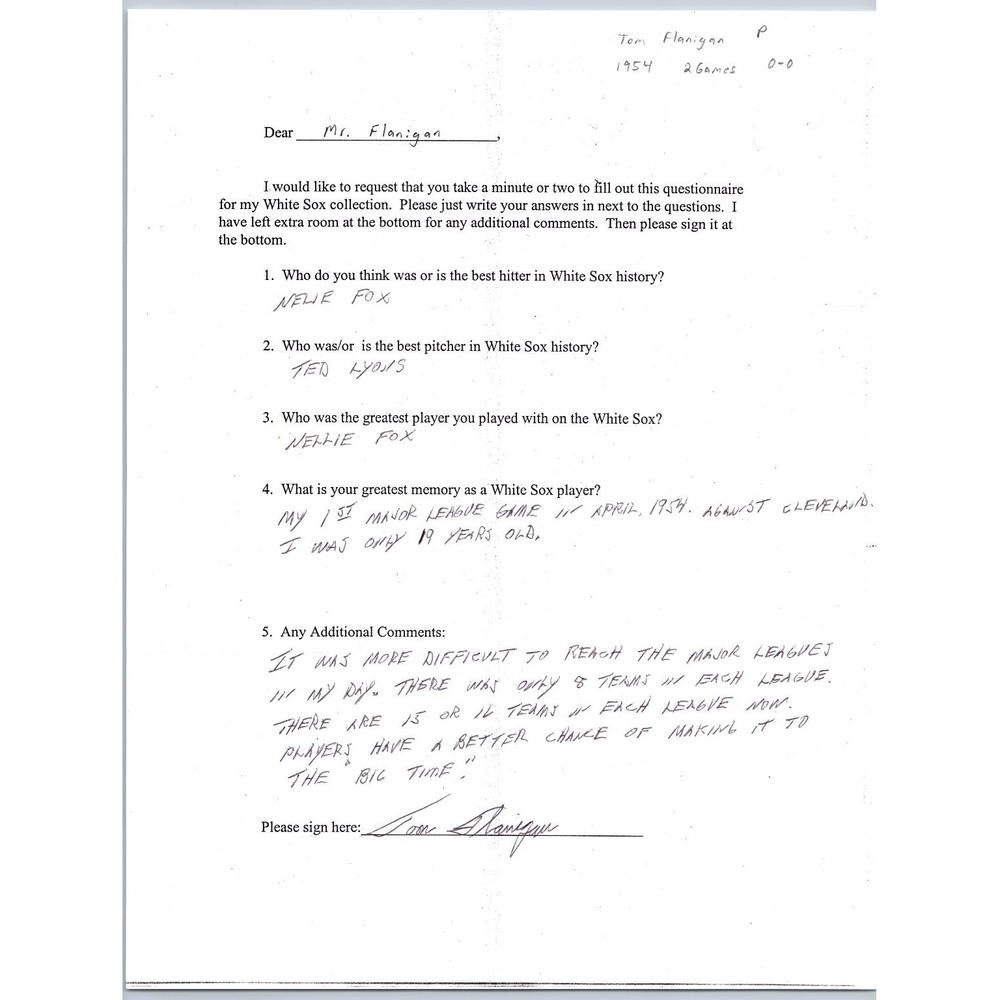 Tom Flanigan P
1954 2 Games 0-0
Dear Mr. Flanigan,
I would like to request that you take a minute or two to fill out this questionnaire
for my White Sox collection. Please just write your answers in next to the questions. I
have left extra room at the bottom for any additional comments. Then please sign it at
the bottom.
1. Who do you think was or is the best hitter in White Sox history?
NELLIE FOX
2. Who was/or is the best pitcher in White Sox history?
TED LYONS
3. Who was the greatest player you played with on the White Sox?
NELLIE FOX
4. What is your greatest memory as a White Sox player?
MY 1ST MAJOR LEAGUE GAME IN APRIL, 1954. AGAINST CLEVELAND.
I WAS ONLY 19 YEARS OLD.
5. Any Additional Comments:
IT WAS MORE DIFFICULT TO REACH THE MAJOR LEAGUES
IN MY DAY. THERE WAS ONLY 8 TEAMS IN EACH LEAGUE.
THERE ARE 15 OR 16 TEAMS IN EACH LEAGUE NOW.
PLAYERS HAVE A BETTER CHANCE OF MAKING IT TO
THE "BIG TIME".
Please sign here: Tom Flanigan